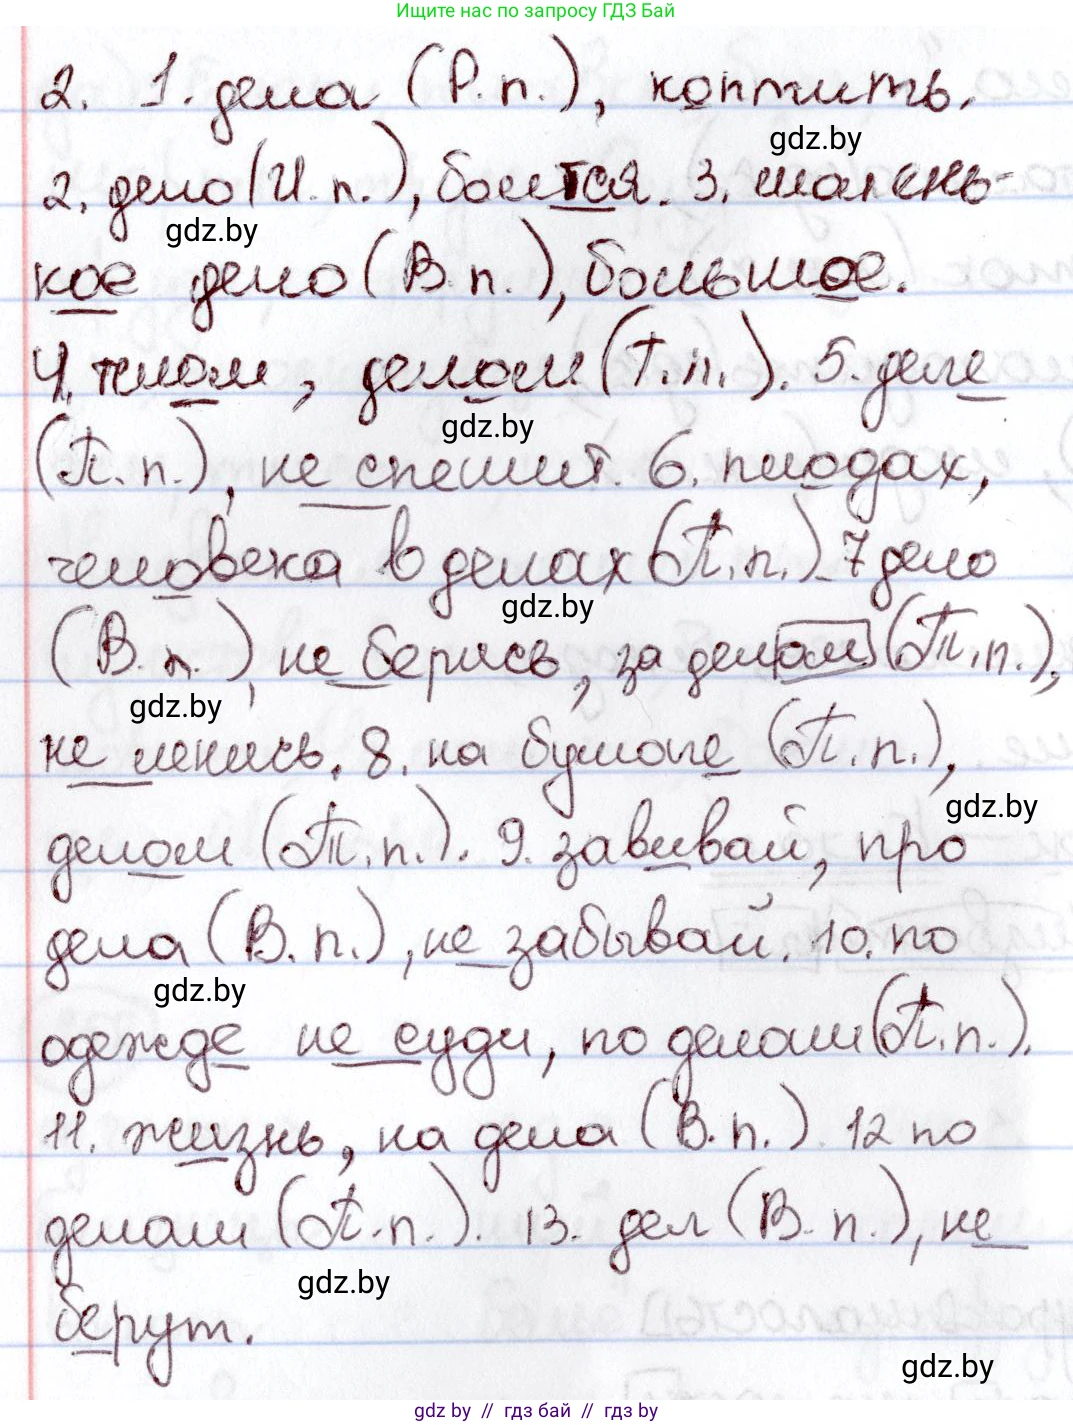 Ищите нас по запросу ГДЗ Бай
2. 1. дела (Р.п.), коптить.
gdz.by
2. дело (И.п.), боится. 3. малень-
gdz.by
кое дело (В.п.), большое.
4. телом, делом (Т.п.). 5. деле
gdz.by
(П.п.), не спешит. 6. плодах,
человека в делах (П.п.). 7 дело
gdz.by
(В.п.), не берись, за делом (Т.п.),
gdz.by
не ленись. 8. на бумаге (П.п.),
gdz.by
делом (Т.п.). 9. завивай, про
дела (В.п.), не забывай. 10. по
gdz.by
одежде не суди, по делам (П.п.).
11. жизнь, на дела (В.п.) 12 по
делам (П.п.). 13. дел (В.п.), не
gdz.by
берут.
gdz.by
gdz.by // гдз бай // gdz.by